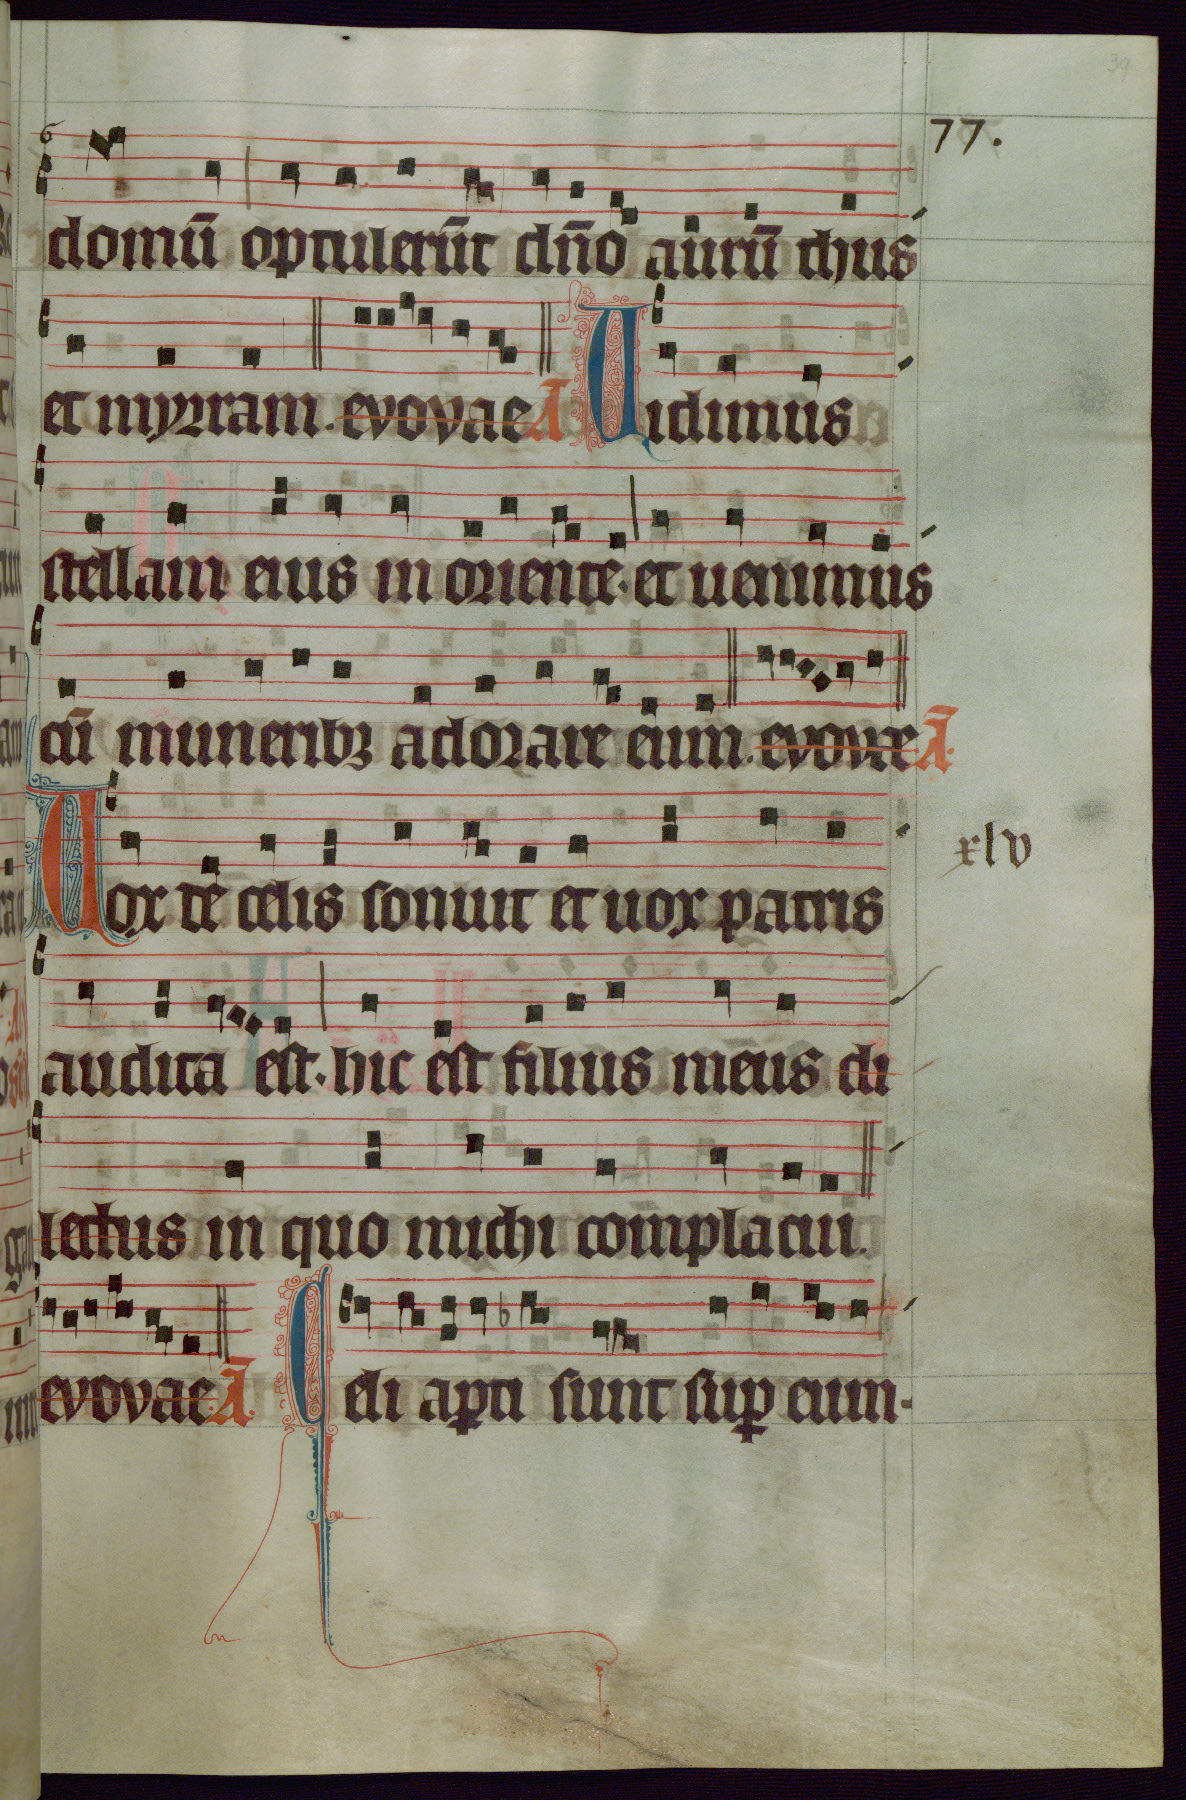 39
77.
domū optulerūt dn̄o aurū thus
et myrram. evovae A̅ Uidimus
stellam eius in oriente. et uenimus
cū muneribꝫ adorare eum. evovae A̅.
Uox de celis sonuit et uox patris
xlv
audita est. hic est filius meus di
lectus in quo michi complacui.
evovae. A̅. Celi aꝑti sunt suꝑ eum.